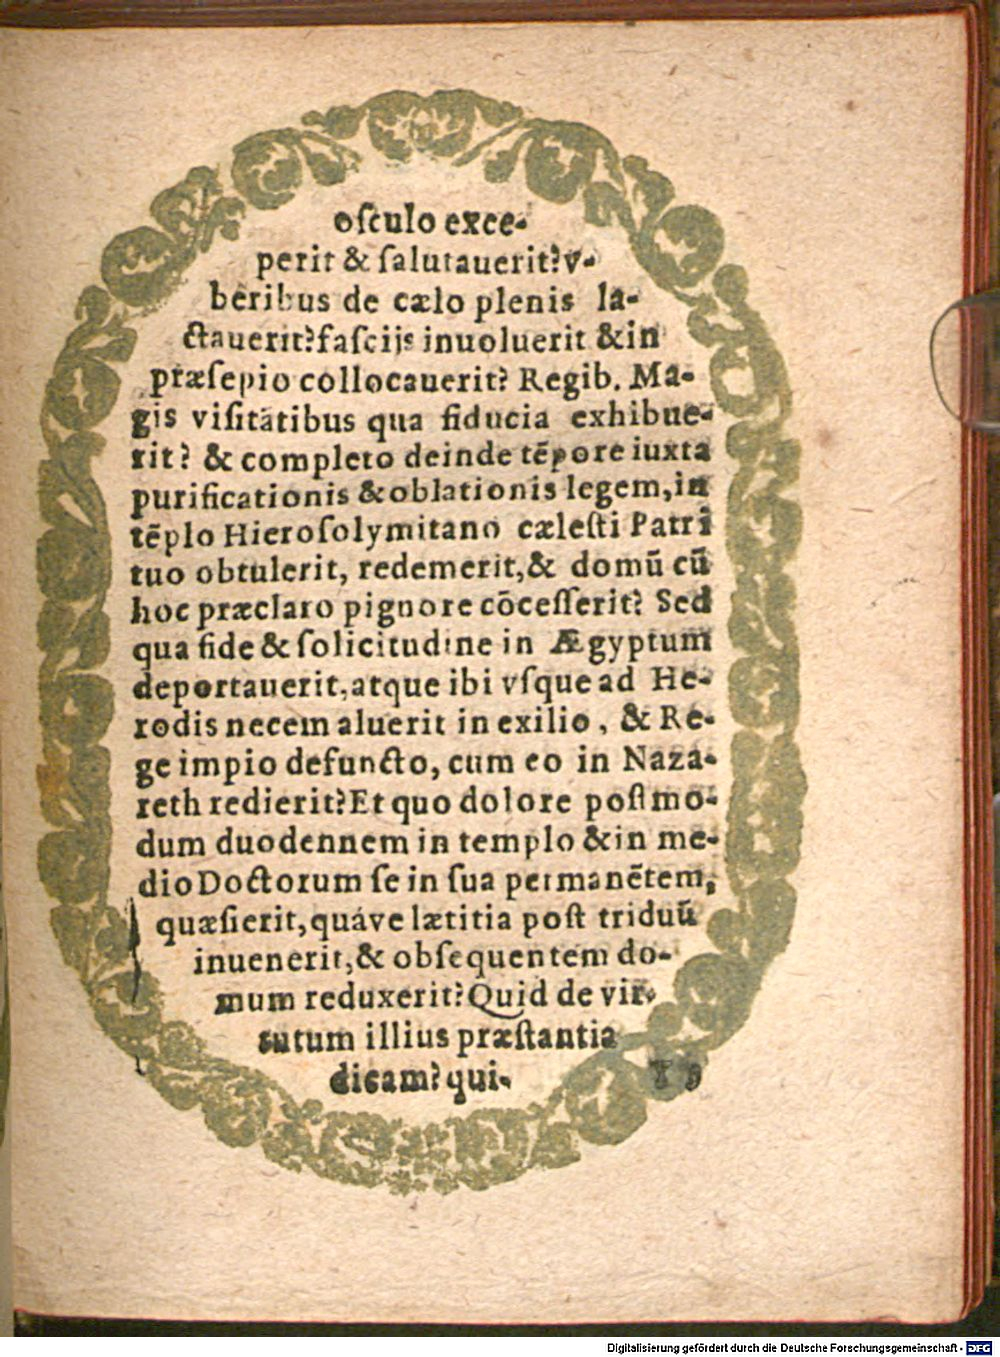 oſculo exce-
perit & ſalutauerit? v-
beribus de cælo plenis la-
ctauerit? faſcijs inuoluerit & in
præſepio collocauerit? Regib. Ma-
gis viſitātibus qua fiducia exhibue-
rit? & completo deinde tēpore iuxta
purificationis & oblationis legem, in
tēplo Hieroſolymitano cæleſti Patri
tuo obtulerit, redemerit, & domū cū
hoc præclaro pignore cōceſſerit? Sed
qua fide & ſolicitudine in Ægyptum
deportauerit, atque ibi vſque ad He-
rodis necem aluerit in exilio, & Re-
ge impio defuncto, cum eo in Naza-
reth redierit? Et quo dolore poſtmo-
dum duodennem in templo & in me-
dio Doctorum ſe in ſua permanētem,
quæſierit, quáve lætitia poſt triduū
inuenerit, & obſequentem do-
mum reduxerit? Quid de vir-
tutum illius præſtantia
dicam? qui-
Digitalisierung gefördert durch die Deutsche Forschungsgemeinschaft - DFG